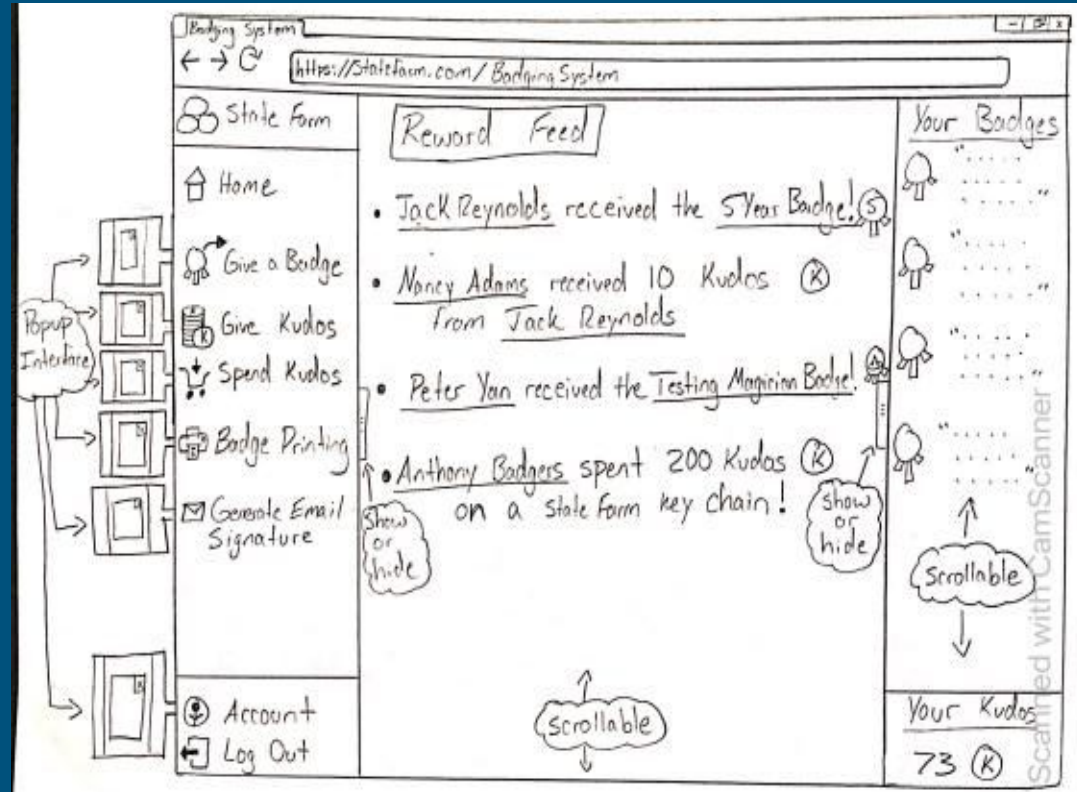 Badging System
https://StateFarm.com/BadgingSystem
State Farm
Home
Give a Badge
Give Kudos
Spend Kudos
Badge Printing
Generate Email
Signature
Account
Log Out
Popup
Interface
Reward Feed
• Jack Reynolds received the 5 Year Badge! 5
• Nancy Adams received 10 Kudos K
from Jack Reynolds
• Peter Yan received the Testing Magician Badge!
• Anthony Badgers spent 200 Kudos K
on a State Farm key chain!
Show
or
hide
Show
or
hide
Scrollable
Your Badges
Scrollable
Your Kudos
73 K
Scanned with CamScanner